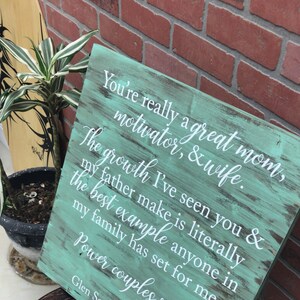 You're really a great mom,
motivator, & wife.
The growth I've seen you &
my father make is literally
the best example anyone in
my family has set for me
Power couples
Glen